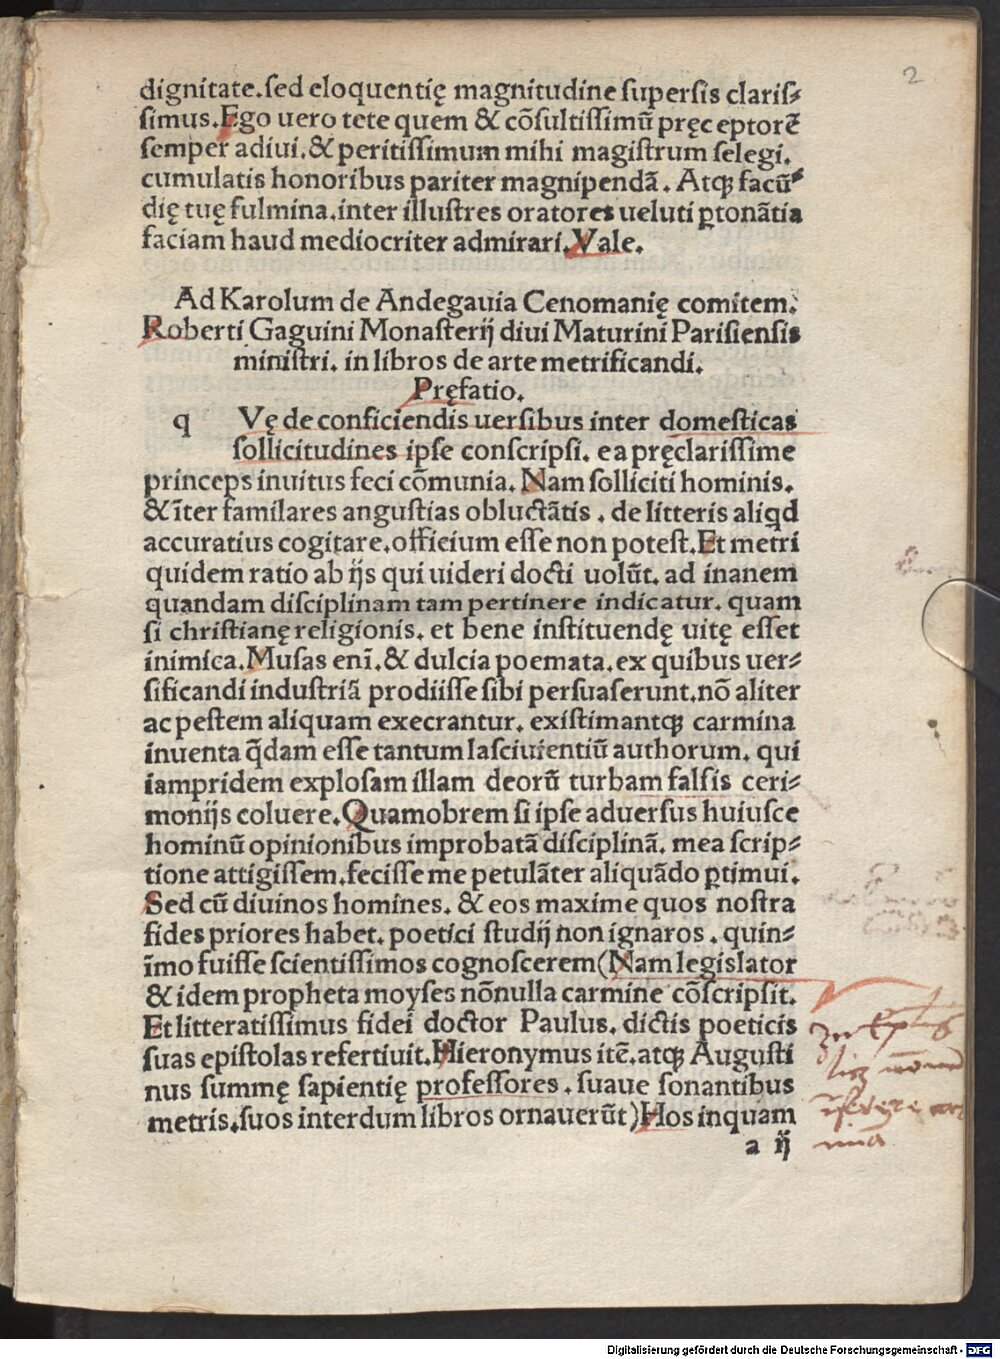 2
dignitate. sed eloquentię magnitudine supersis claris⸗
simus. Ego uero tete quem & cõsultissimũ pręceptorẽ
semper adiui. & peritissimum mihi magistrum selegi.
cumulatis honoribus pariter magnipendã. Atqꝫ facũ⸗
dię tuę fulmina. inter illustres oratores ueluti ꝑtonãtia
faciam haud mediocriter admirari. Vale.
Ad Karolum de Andegauia Cenomanię comitem.
Roberti Gaguini Monasterij diui Maturini Parisiensis
ministri. in libros de arte metrificandi.
Pręfatio.
q Vę de conficiendis uersibus inter domesticas
sollicitudines ipse conscripsi. ea pręclarissime
princeps inuitus feci cõmunia. Nam solliciti hominis.
& ĩter familares angustias obluctãtis. de litteris aliqd
accuratius cogitare. officium esse non potest. Et metri
quidem ratio ab ijs qui uideri docti uolũt. ad inanem
quandam disciplinam tam pertinere indicatur. quam
si christianę religionis. et bene instituendę uitę esset
inimica. Musas enĩ. & dulcia poemata. ex quibus uer⸗
sificandi industriã prodiisse sibi persuaserunt. nõ aliter
ac pestem aliquam execrantur. existimantqꝫ carmina
inuenta q̃dam esse tantum lasciuientiũ authorum. qui
iampridem explosam illam deorũ turbam falsis ceri⸗
monijs coluere. Quamobrem si ipse aduersus huiusce
hominũ opinionibus improbatã disciplinã. mea scrip⸗
tione attigissem. fecisse me petulãter aliquãdo ꝑtimui.
Sed cũ diuinos homines. & eos maxime quos nostra
fides priores habet. poetici studij non ignaros. quin⸗
ĩmo fuisse scientissimos cognoscerem (Nam legislator
& idem propheta moyses nõnulla carmine cõscripsit.
Et litteratissimus fidei doctor Paulus. dictis poeticis
suas epistolas refertiuit. Hieronymus itẽ. atqꝫ Augusti
nus summę sapientię professores. suaue sonantibus
metris. suos interdum libros ornauerũt) Hos inquam
a ij
Digitalisierung gefördert durch die Deutsche Forschungsgemeinschaft - DFG